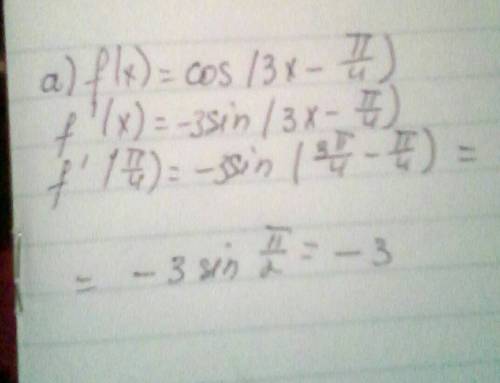 a) f(x) = cos(3x - π/4)
f'(x) = -3sin(3x - π/4)
f'(π/4) = -3sin(3π/4 - π/4) =
= -3 sin π/2 = -3